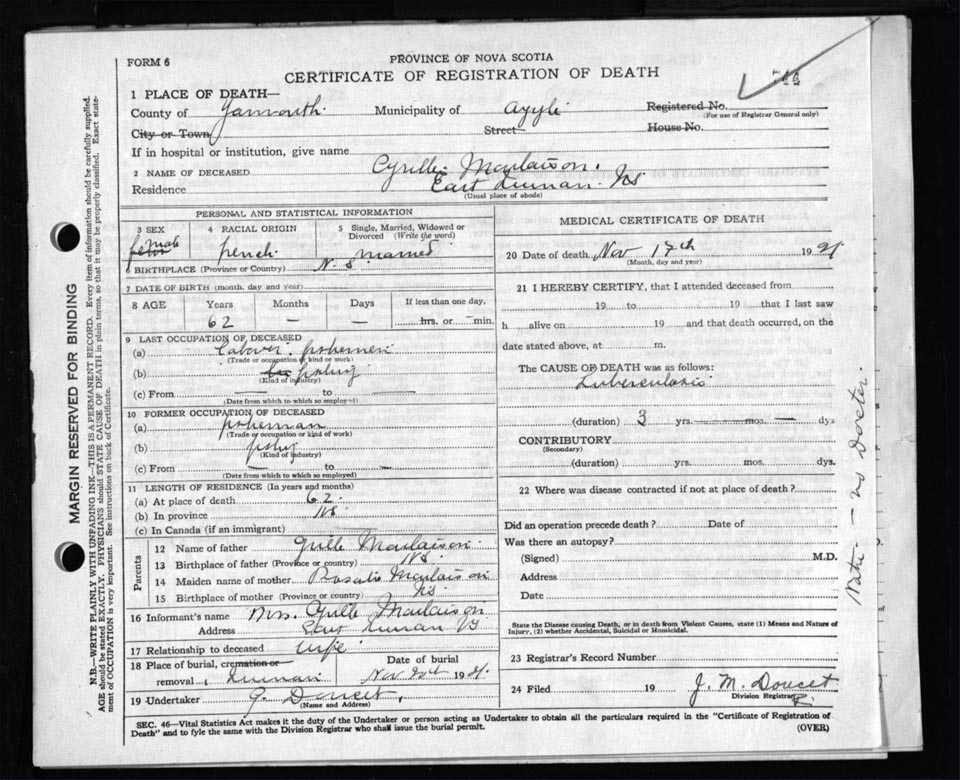 FORM 6
PROVINCE OF NOVA SCOTIA
CERTIFICATE OF REGISTRATION OF DEATH
744
1 PLACE OF DEATH—
County of Yarmouth. Municipality of Argyle Registered No.
(For use of Registrar General only)
City or Town Street House No.
If in hospital or institution, give name
2 NAME OF DECEASED Cyrille Muulaison.
Residence East Quinan. NS
(Usual place of abode)
PERSONAL AND STATISTICAL INFORMATION
3 SEX
male
4 RACIAL ORIGIN
french
5 Single, Married, Widowed or Divorced (Write the word)
married
6 BIRTHPLACE (Province or Country) N.S.
7 DATE OF BIRTH (month, day and year)
8 AGE Years Months Days If less than one day,
62 — — hrs. or min.
9 LAST OCCUPATION OF DECEASED
(a)
(Trade or occupation or kind of work)
(b)
(Kind of industry)
(c) From — to —
(Date from which to which so employed)
10 FORMER OCCUPATION OF DECEASED
(a)
(Trade or occupation or kind of work)
(b)
(Kind of industry)
(c) From — to —
(Date from which to which so employed)
11 LENGTH OF RESIDENCE (In years and months)
(a) At place of death 62.
(b) In province NS
(c) In Canada (if an immigrant)
Parents
12 Name of father
13 Birthplace of father (Province or country) NS.
14 Maiden name of mother Rosalie
15 Birthplace of mother (Province or Country) NS
16 Informant's name Mrs.
Address East Quinan NS
17 Relationship to deceased wife
18 Place of burial, cremation or removal Quinan
Date of burial Nov 20th 19
19 Undertaker J. Doucet,
(Name and Address)
MEDICAL CERTIFICATE OF DEATH
20 Date of death Nov 19
(Month, day and year)
21 I HEREBY CERTIFY, that I attended deceased from
19 to 19 that I last saw
h alive on 19 and that death occurred, on the
date stated above, at m.
The CAUSE OF DEATH was as follows:
Tuberculosis
(duration) 3 yrs. mos. — dys
CONTRIBUTORY
(Secondary)
(duration) yrs. mos. dys.
22 Where was disease contracted if not at place of death?
Did an operation precede death? Date of
Was there an autopsy?
(Signed) M.D.
Address
Date
State the Disease causing Death, or in death from Violent Causes, state (1) Means and Nature of
Injury, (2) whether Accidental, Suicidal or Homicidal.
23 Registrar's Record Number
24 Filed 19 J. M. Doucet
Division Registrar
SEC. 46—Vital Statistics Act makes it the duty of the Undertaker or person acting as Undertaker to obtain all the particulars required in the "Certificate of Registration of
Death" and to fyle the same with the Division Registrar who shall issue the burial permit.
(OVER)
MARGIN RESERVED FOR BINDING
N.B.—WRITE PLAINLY WITH UNFADING INK—THIS IS A PERMANENT RECORD. Every item of information should be carefully supplied.
AGE should be stated EXACTLY. PHYSICIANS should STATE CAUSE OF DEATH in plain terms, so that it may be properly classified. Exact state-
ment of OCCUPATION is very important. See instructions on back of Certificate.
Note. — no Doctor.